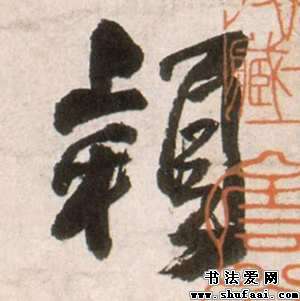 穎
藏
书法爱网
www.shufaai.com